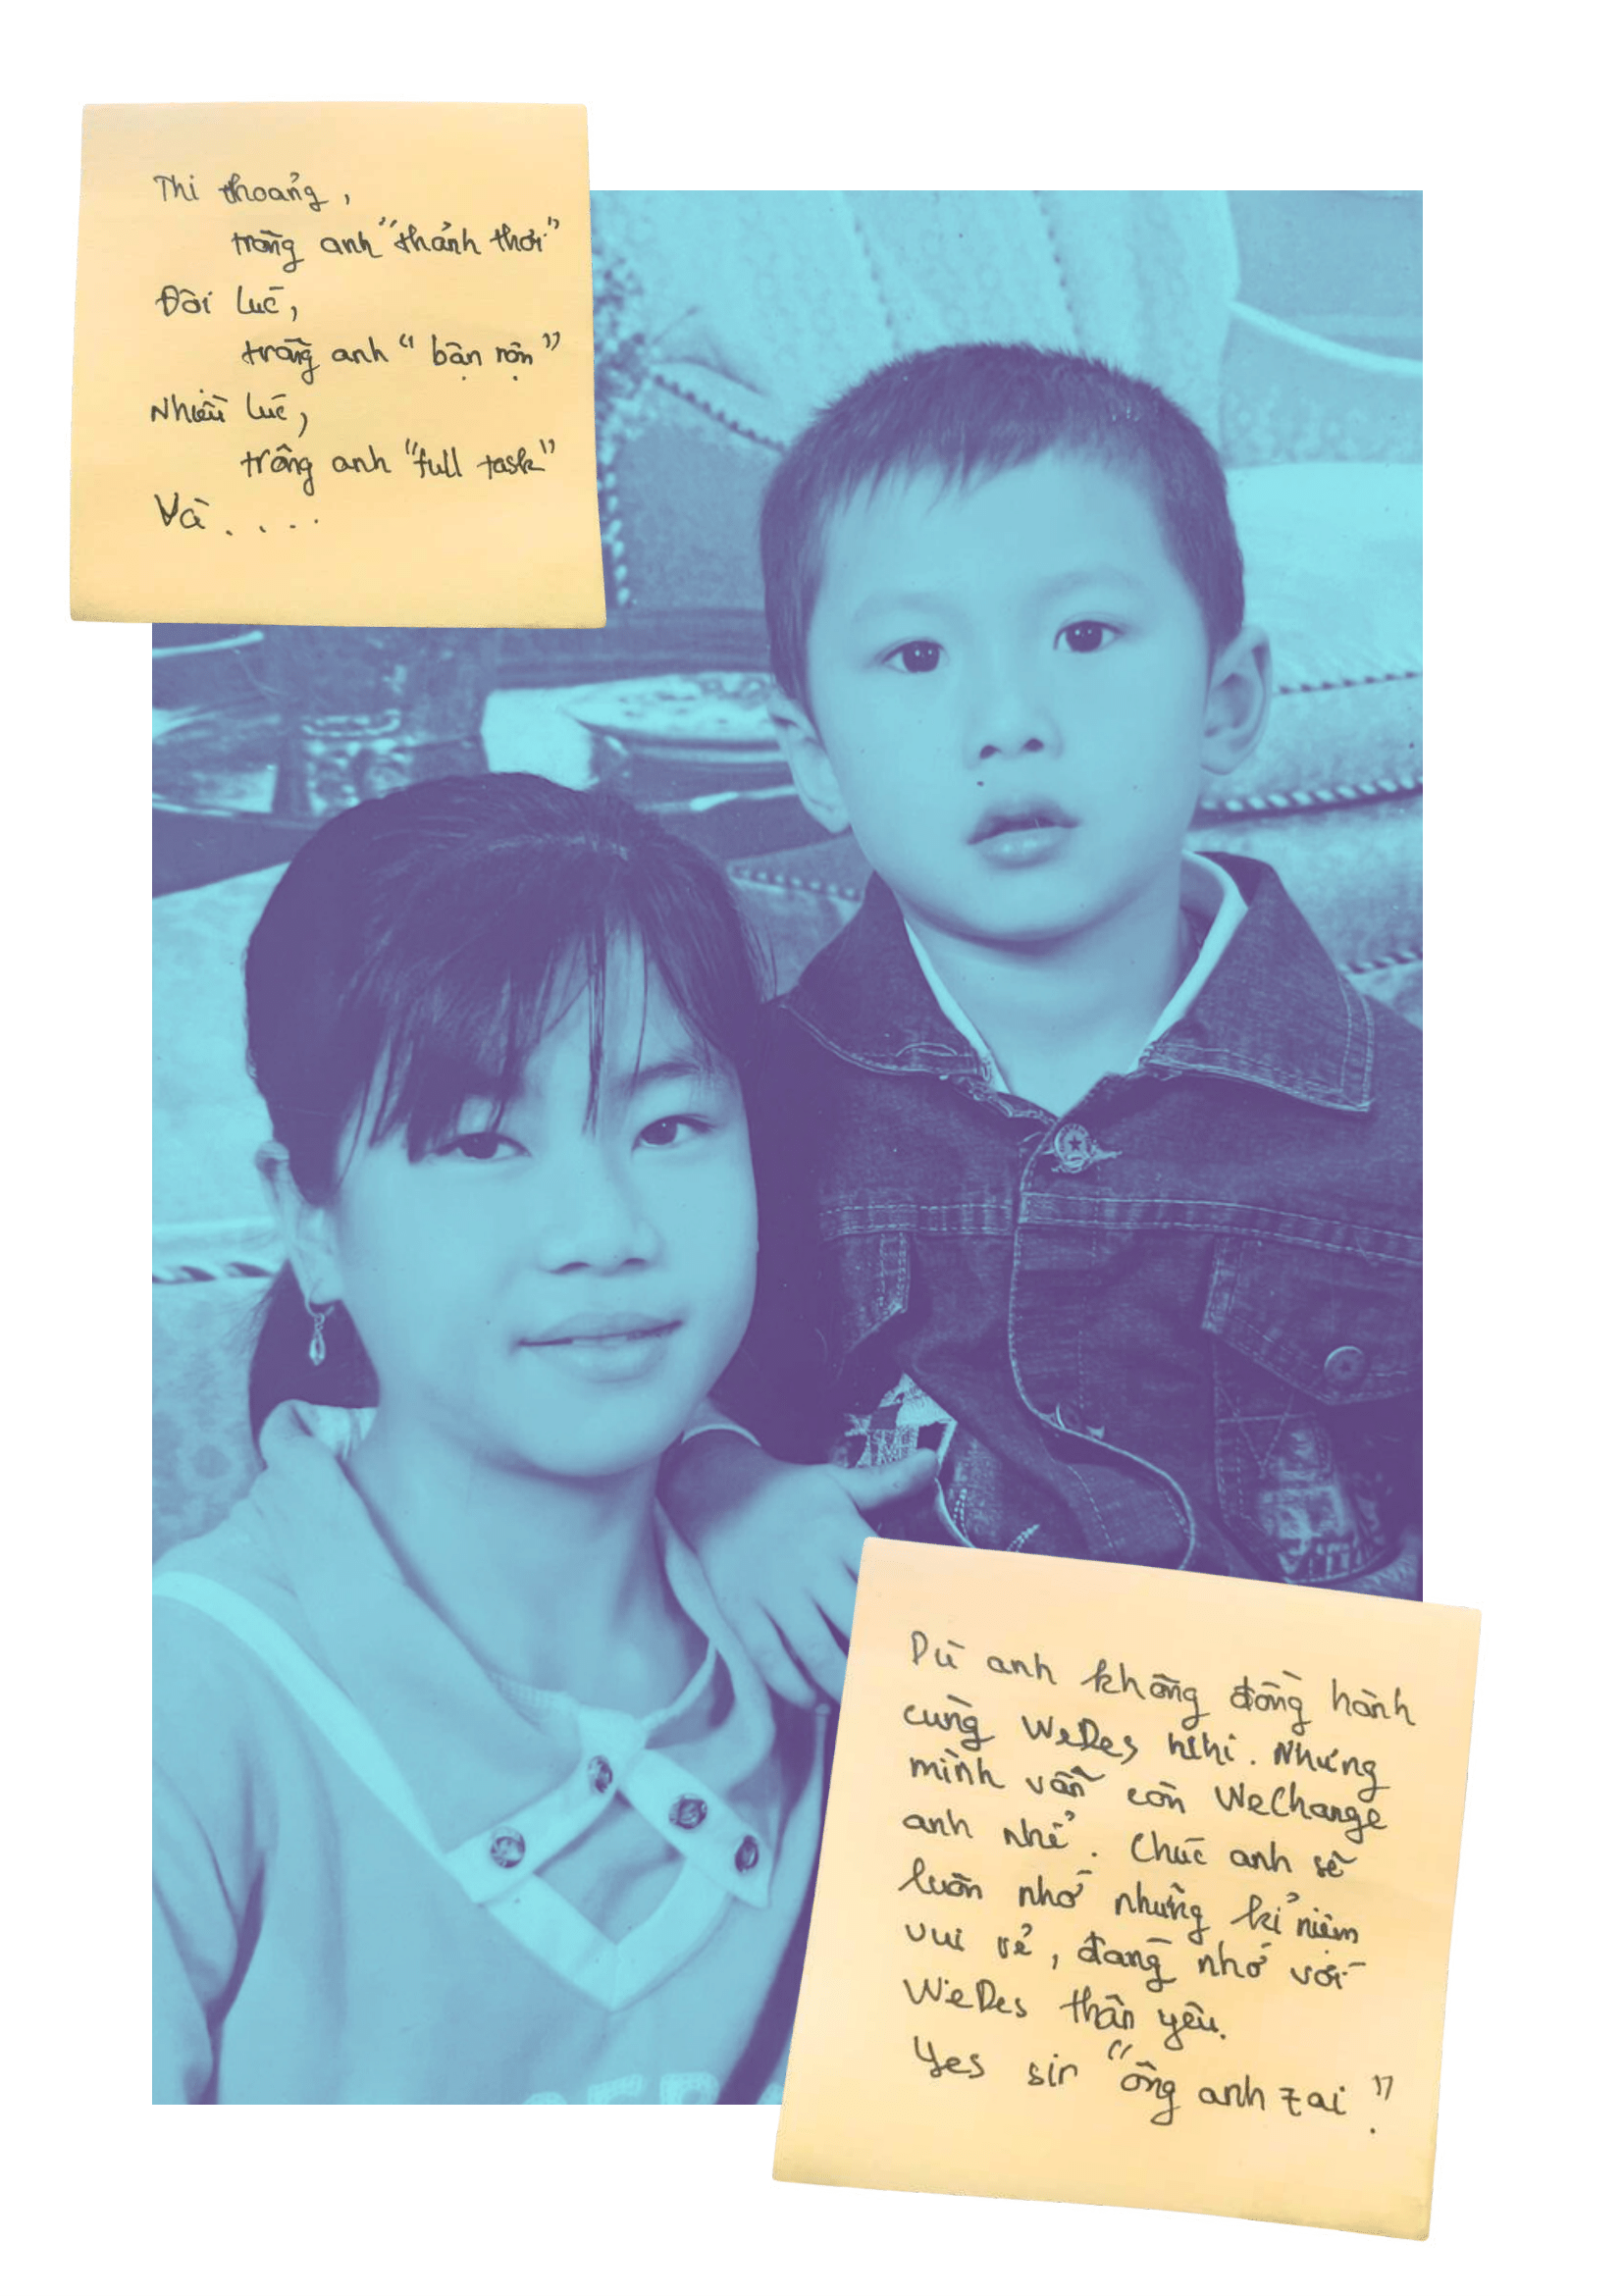 Thi thoảng,
trông anh "thảnh thơi"
Đôi lúc,
trông anh "bận rộn"
Nhiều lúc,
trông anh "full task"
Và....
Dù anh không đồng hành
cùng WeDes hihi. Nhưng
mình vẫn còn WeChange
anh nhé. Chúc anh sẽ
luôn nhớ những kỉ niệm
vui vẻ, đáng nhớ với
WeDes thân yêu.
Yes sir "ông anh zai".